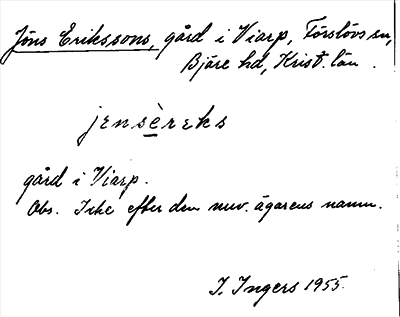 Jöns Erikssons, gård i Viarp, Förslövs sn,
Bjäre hd, Krist. län.
jɪnsèrɪks
gård i Viarp.
Obs. Icke efter den nuv. ägarens namn.
I. Ingers 1955.